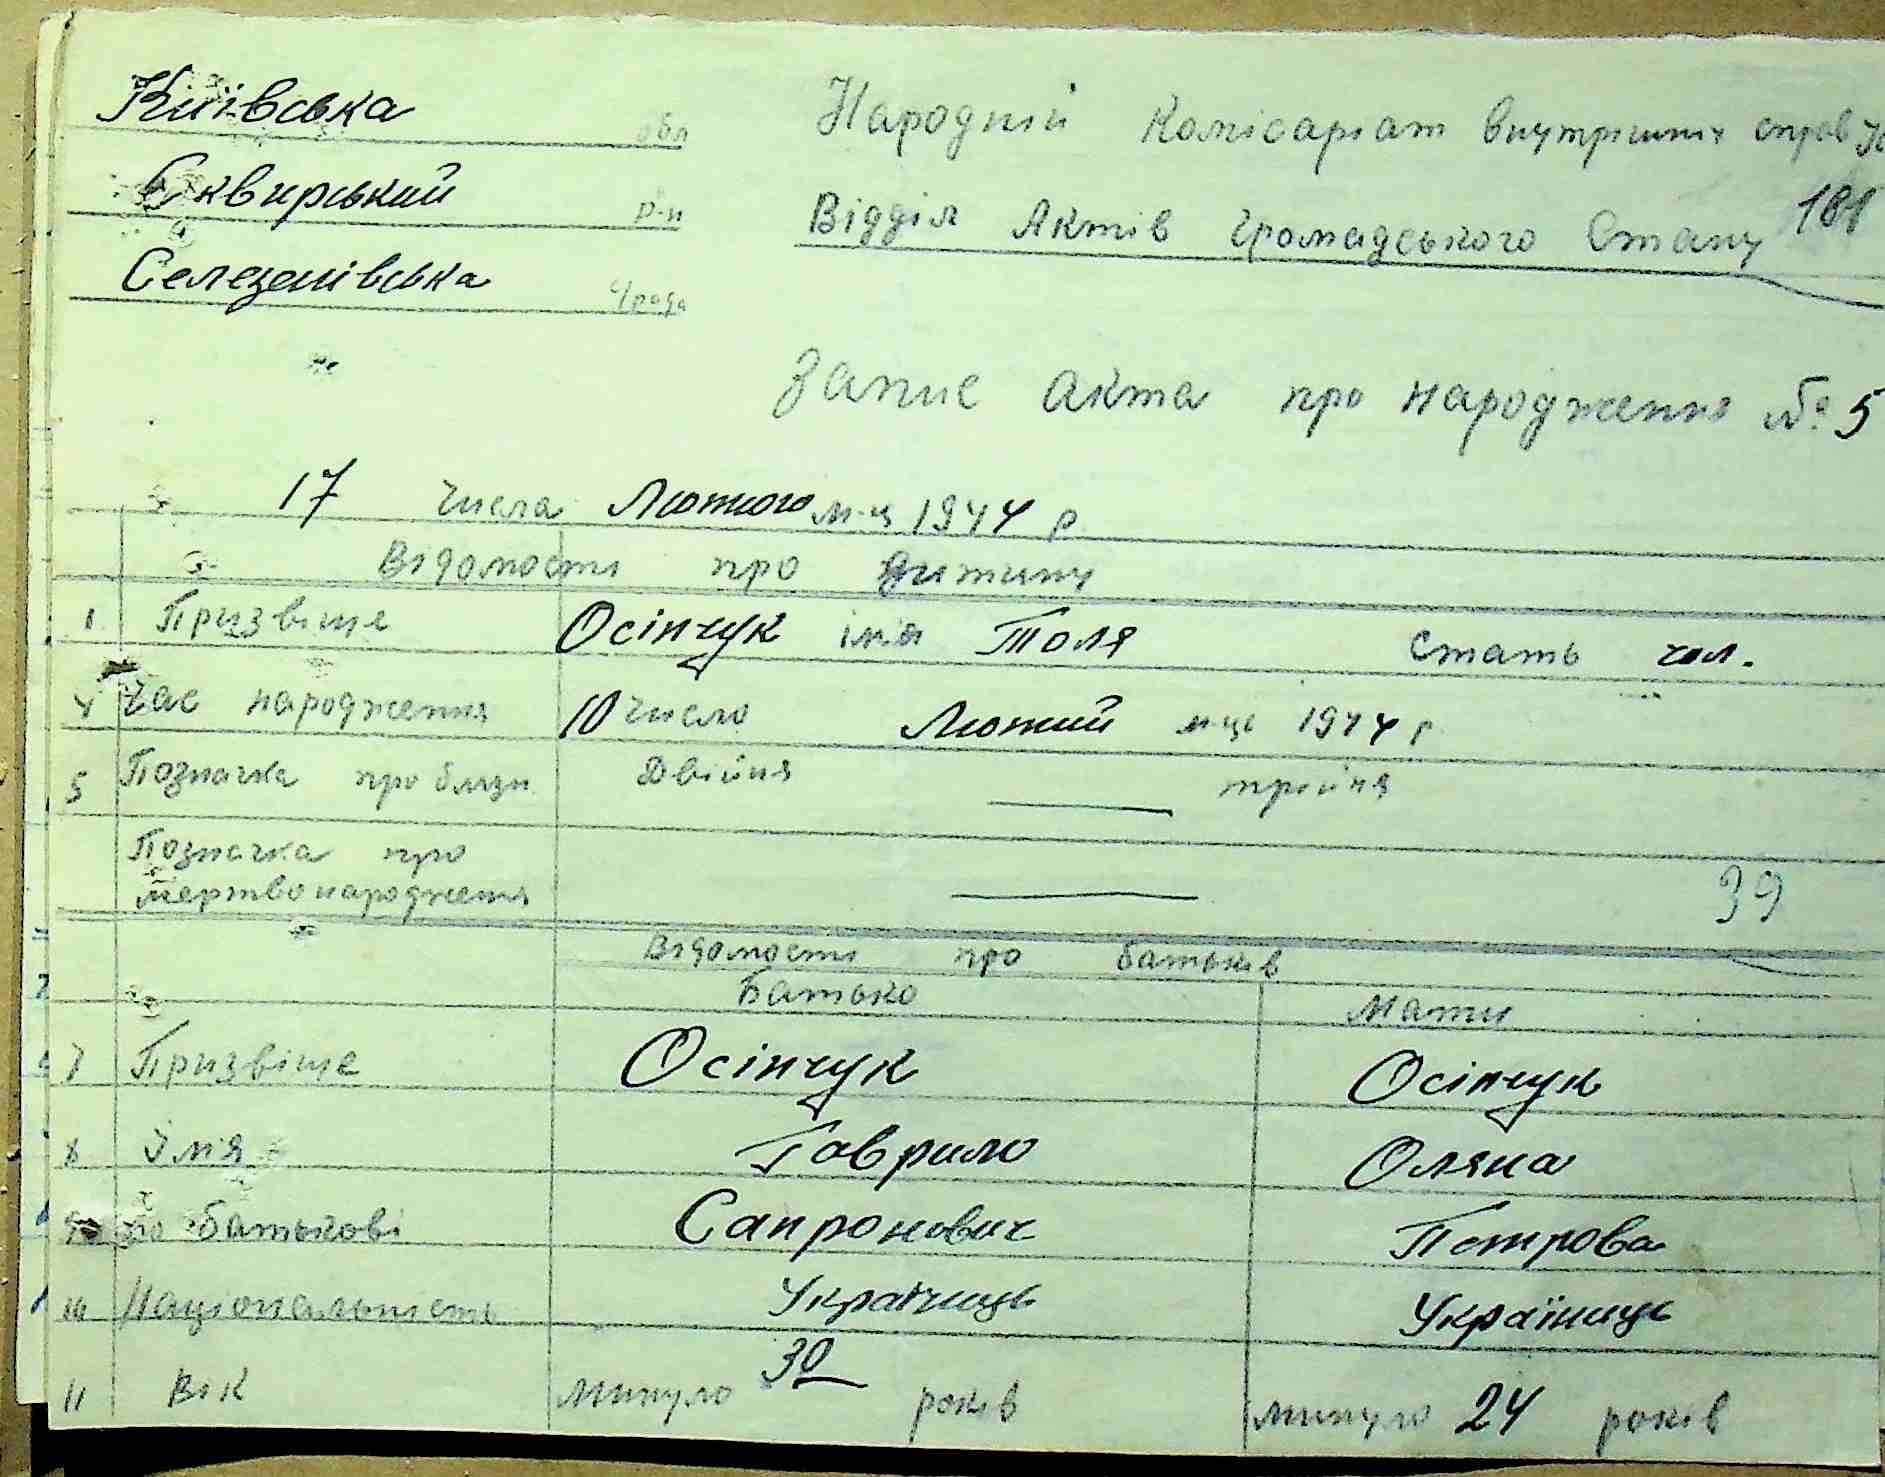 Київська обл
Сквирський р-н
Селезенівська с/рада
Народний Комісаріат внутрішніх справ
Відділ Актів Громадського Стану 181
Запис акта про народження № 5
17 числа Лютого м-ц 1944 р
Відомости про дитину
1 Призвіще Осіпчук імя Толя Стать чол.
4 Час народження 10 число Лютий м-ць 1944 р.
5 Позначка про близн. Двійня — трійня
Позначка про
мертвонародження — 39
Відомости про батьків
Батько Мати
7 Призвіще Осіпчук Осіпчук
8 Імя Гаврило Оляна
9 по батькові Сапронович Петрова
10 Національність Українець Українець
11 Вік минуло 30 років минуло 24 років